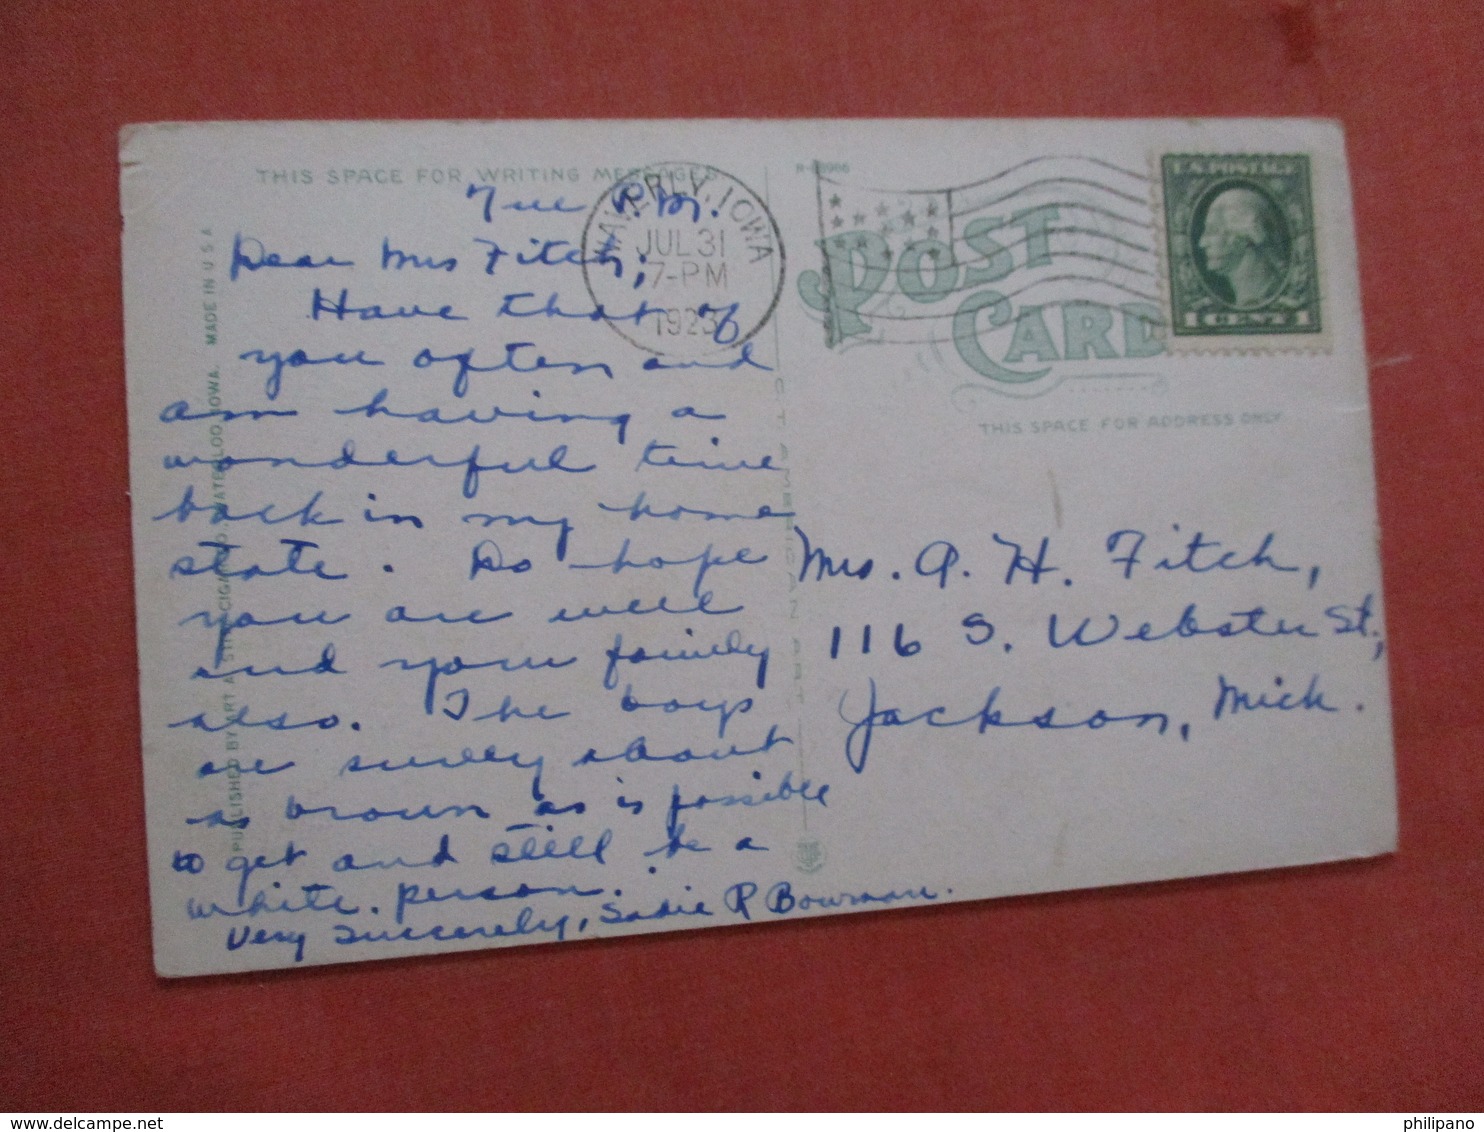 THIS SPACE FOR WRITING MESSAGES
Tue P.M.
Dear Mrs Fitch;
Have thot of
you often and
am having a
wonderful time
back in my home
state. Do hope
you are well
and your family
also. The boys
are surely about
as brown as is possible
to get and still be a
white person.
Very Sincerely, Sadie R Bowman.
PUBLISHED BY ART WATERLOO, IOWA. MADE IN U S A
WAVERLY, IOWA
JUL 31
7-PM
1923
POST
CARD
THIS SPACE FOR ADDRESS ONLY
U.S. POSTAGE
1 CENT 1
Mrs. A. H. Fitch,
116 S. Webster St,
Jackson, Mich.
https://www.delcampe.net
philipano